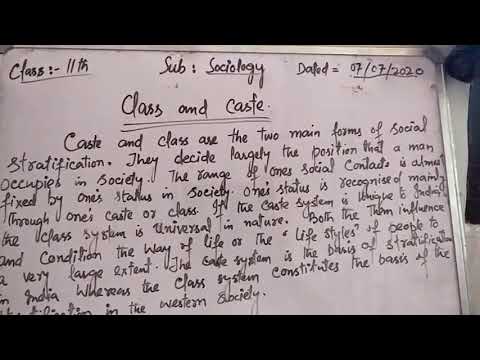 Class:- 11th Sub: Sociology Dated = 07/07/2020
Class and Caste.
Caste and class are the two main forms of social
stratification. They decide largely the position that a man
occupies in society. The range of one's social contacts is almost
fixed by one's status in society. One's status is recognised mainly
through one's caste or class. If the caste system is unique to India,
the class system is universal in nature. Both the them influence
and condition the way of life or the "life styles" of people to
a very large extent. The caste system is the basis of stratification
in India whereas the class system constitutes the basis of the
in the western society.